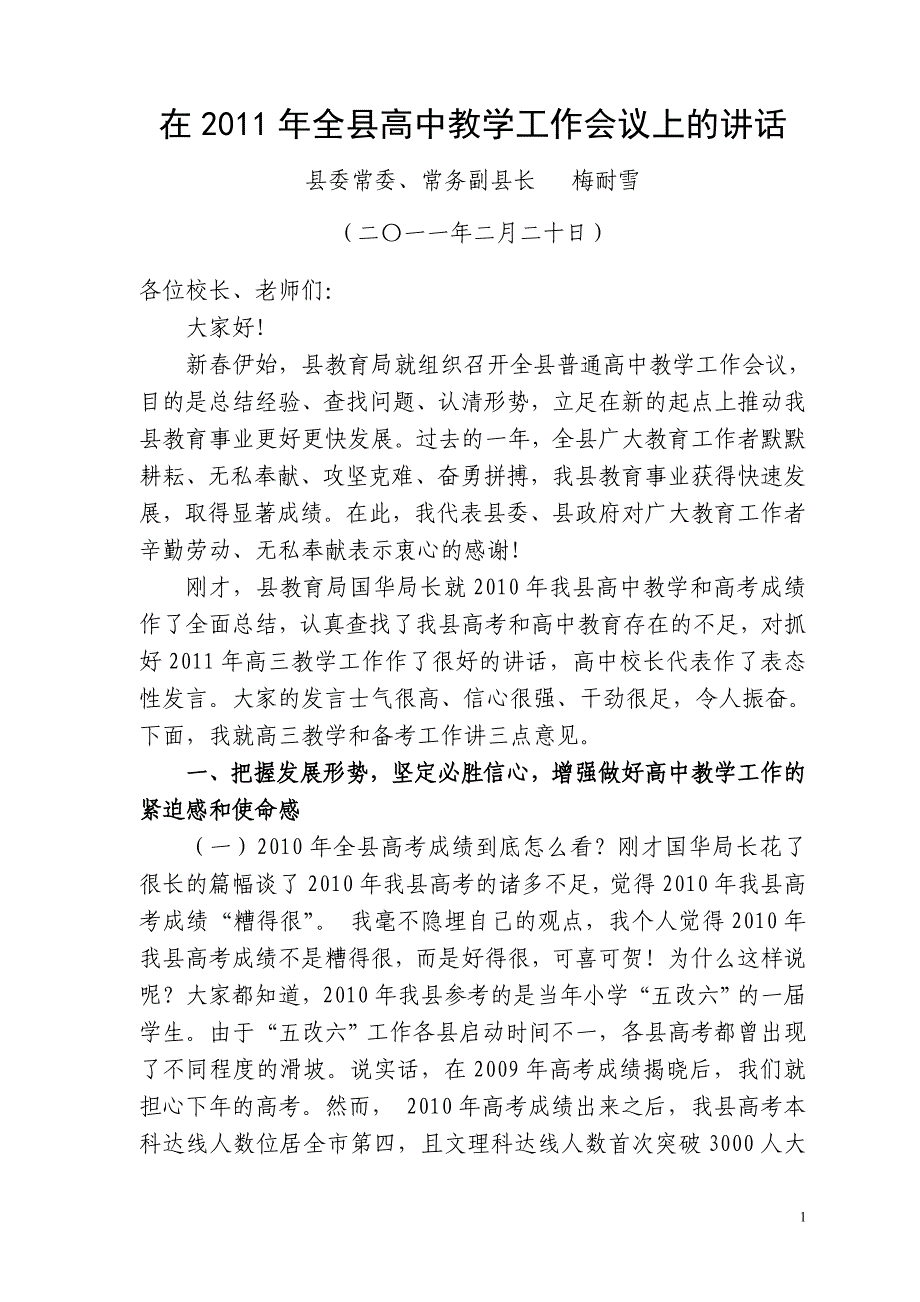 在 2011 年全县高中教学工作会议上的讲话
县委常委、常务副县长 梅耐雪
（二〇一一年二月二十日）
各位校长、老师们：
大家好！
新春伊始，县教育局就组织召开全县普通高中教学工作会议，
目的是总结经验、查找问题、认清形势，立足在新的起点上推动我
县教育事业更好更快发展。过去的一年，全县广大教育工作者默默
耕耘、无私奉献、攻坚克难、奋勇拼搏，我县教育事业获得快速发
展，取得显著成绩。在此，我代表县委、县政府对广大教育工作者
辛勤劳动、无私奉献表示衷心的感谢！
刚才，县教育局国华局长就 2010 年我县高中教学和高考成绩
作了全面总结，认真查找了我县高考和高中教育存在的不足，对抓
好 2011 年高三教学工作作了很好的讲话，高中校长代表作了表态
性发言。大家的发言士气很高、信心很强、干劲很足，令人振奋。
下面，我就高三教学和备考工作讲三点意见。
一、把握发展形势，坚定必胜信心，增强做好高中教学工作的
紧迫感和使命感
（一）2010 年全县高考成绩到底怎么看？刚才国华局长花了
很长的篇幅谈了 2010 年我县高考的诸多不足，觉得 2010 年我县高
考成绩“糟得很”。 我毫不隐埋自己的观点，我个人觉得 2010 年
我县高考成绩不是糟得很，而是好得很，可喜可贺！为什么这样说
呢？大家都知道，2010 年我县参考的是当年小学“五改六”的一届
学生。由于“五改六”工作各县启动时间不一，各县高考都曾出现
了不同程度的滑坡。说实话，在 2009 年高考成绩揭晓后，我们就
担心下年的高考。然而， 2010 年高考成绩出来之后，我县高考本
科达线人数位居全市第四，且文理科达线人数首次突破 3000 人大
1